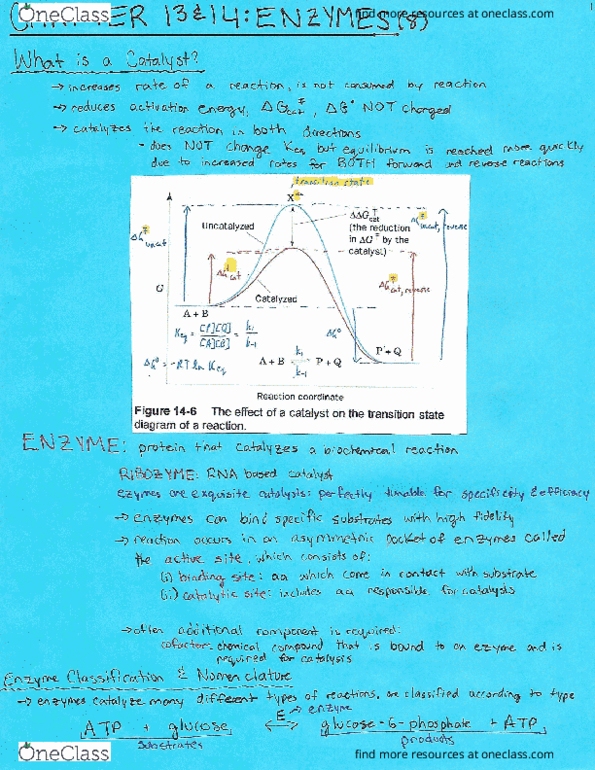 CHAPTER 13&14: ENZYMES (8)
OneClass
find more resources at oneclass.com
1
What is a Catalyst?
→ increases rate of a reaction, is not consumed by reaction
→ reduces activation energy, ΔG‡cat, ΔG° NOT changed
→ catalyzes the reaction in both directions
- does NOT change Keq but equilibrium is reached more quickly
due to increased rates for BOTH forward and reverse reactions
transition state
X‡
Uncatalyzed
ΔΔG‡cat
(the reduction
in ΔG‡ by the
catalyst)
ΔG‡uncat
ΔG‡uncat, reverse
ΔG‡cat
ΔG‡cat, reverse
G
Catalyzed
A + B
Keq = [P][Q]/[A][B] = k1/k-1
ΔG°
P + Q
ΔG° = -RT ln Keq
A + B k1/k-1 P + Q
Reaction coordinate
Figure 14-6 The effect of a catalyst on the transition state
diagram of a reaction.
ENZYME: protein that catalyzes a biochemical reaction
RIBOZYME: RNA based catalyst
ezymes are exquisite catalysts: perfectly tunable for specificity & efficiacy
→ enzymes can bind specific substrates with high fidelity
→ reaction occurs in an asymmetric pocket of enzymes called
the active site, which consists of:
(i) binding site: aa which come in contact with substrate
(ii) catalytic site: includes aa responsible for catalysis
→ often additional component is required:
cofactor: chemical compound that is bound to an enzyme and is
required for catalysis
Enzyme Classification & Nomenclature
→ enzymes catalyze many different types of reactions, are classified according to type
E → enzyme
ATP + glucose ⇌ glucose-6-phosphate + ATP
substrates products
OneClass
find more resources at oneclass.com